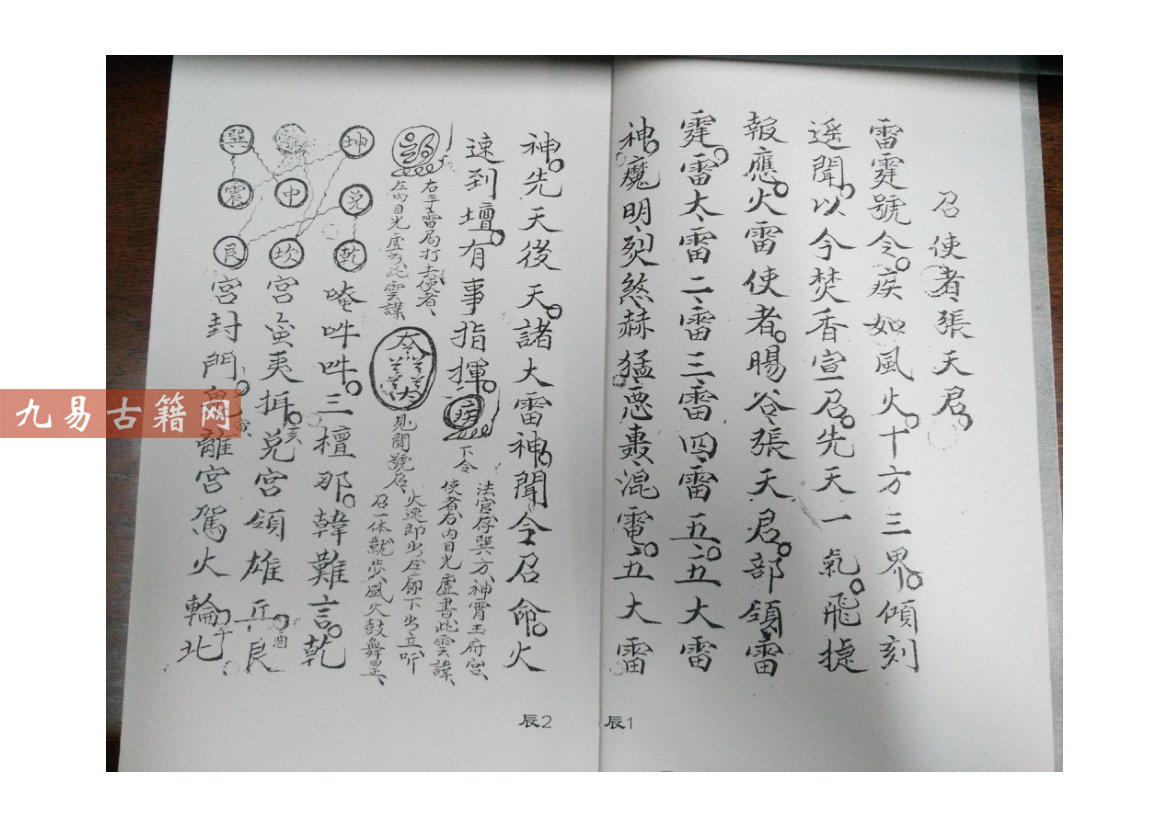 召使者張天君
雷霆號令疾如風火十方三界傾刻
遥聞以今焚香宣召先天一氣飛捷
報應火雷使者暘谷張天君部領雷
霆雷大雷二雷三雷四雷五五大雷
神魔明烈煞赫猛惡棗混電五大雷
神先天後天諸大雷神聞令召命火
速到壇有事指揮
下令
法官存巽方神霄玉府宫
使者右内目光虚書此雲諱
右手雷局打去使者
左内目光虚書此雲諱
見聞號召
火速即出左廓下出立听
召一体就步風火鼓舞罡
坤
兌
乾
中
坎
巽
震
艮
唵吽吽三檀那韓難言乾
宫蛮夷拱亥兌宫領雄兵酉艮
宫封門寅離宫駕火輪午北
辰1
辰2
九易古籍网